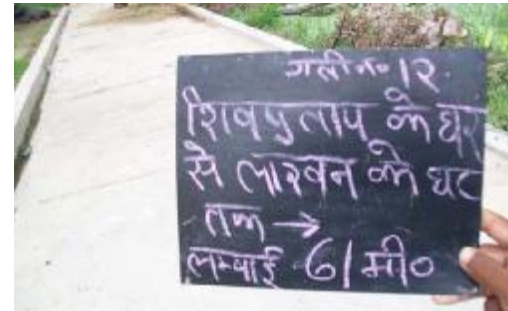 गली न० 12
शिवप्रताप के घर
से लाखन के घर
तक →
लम्बाई 61 मी०